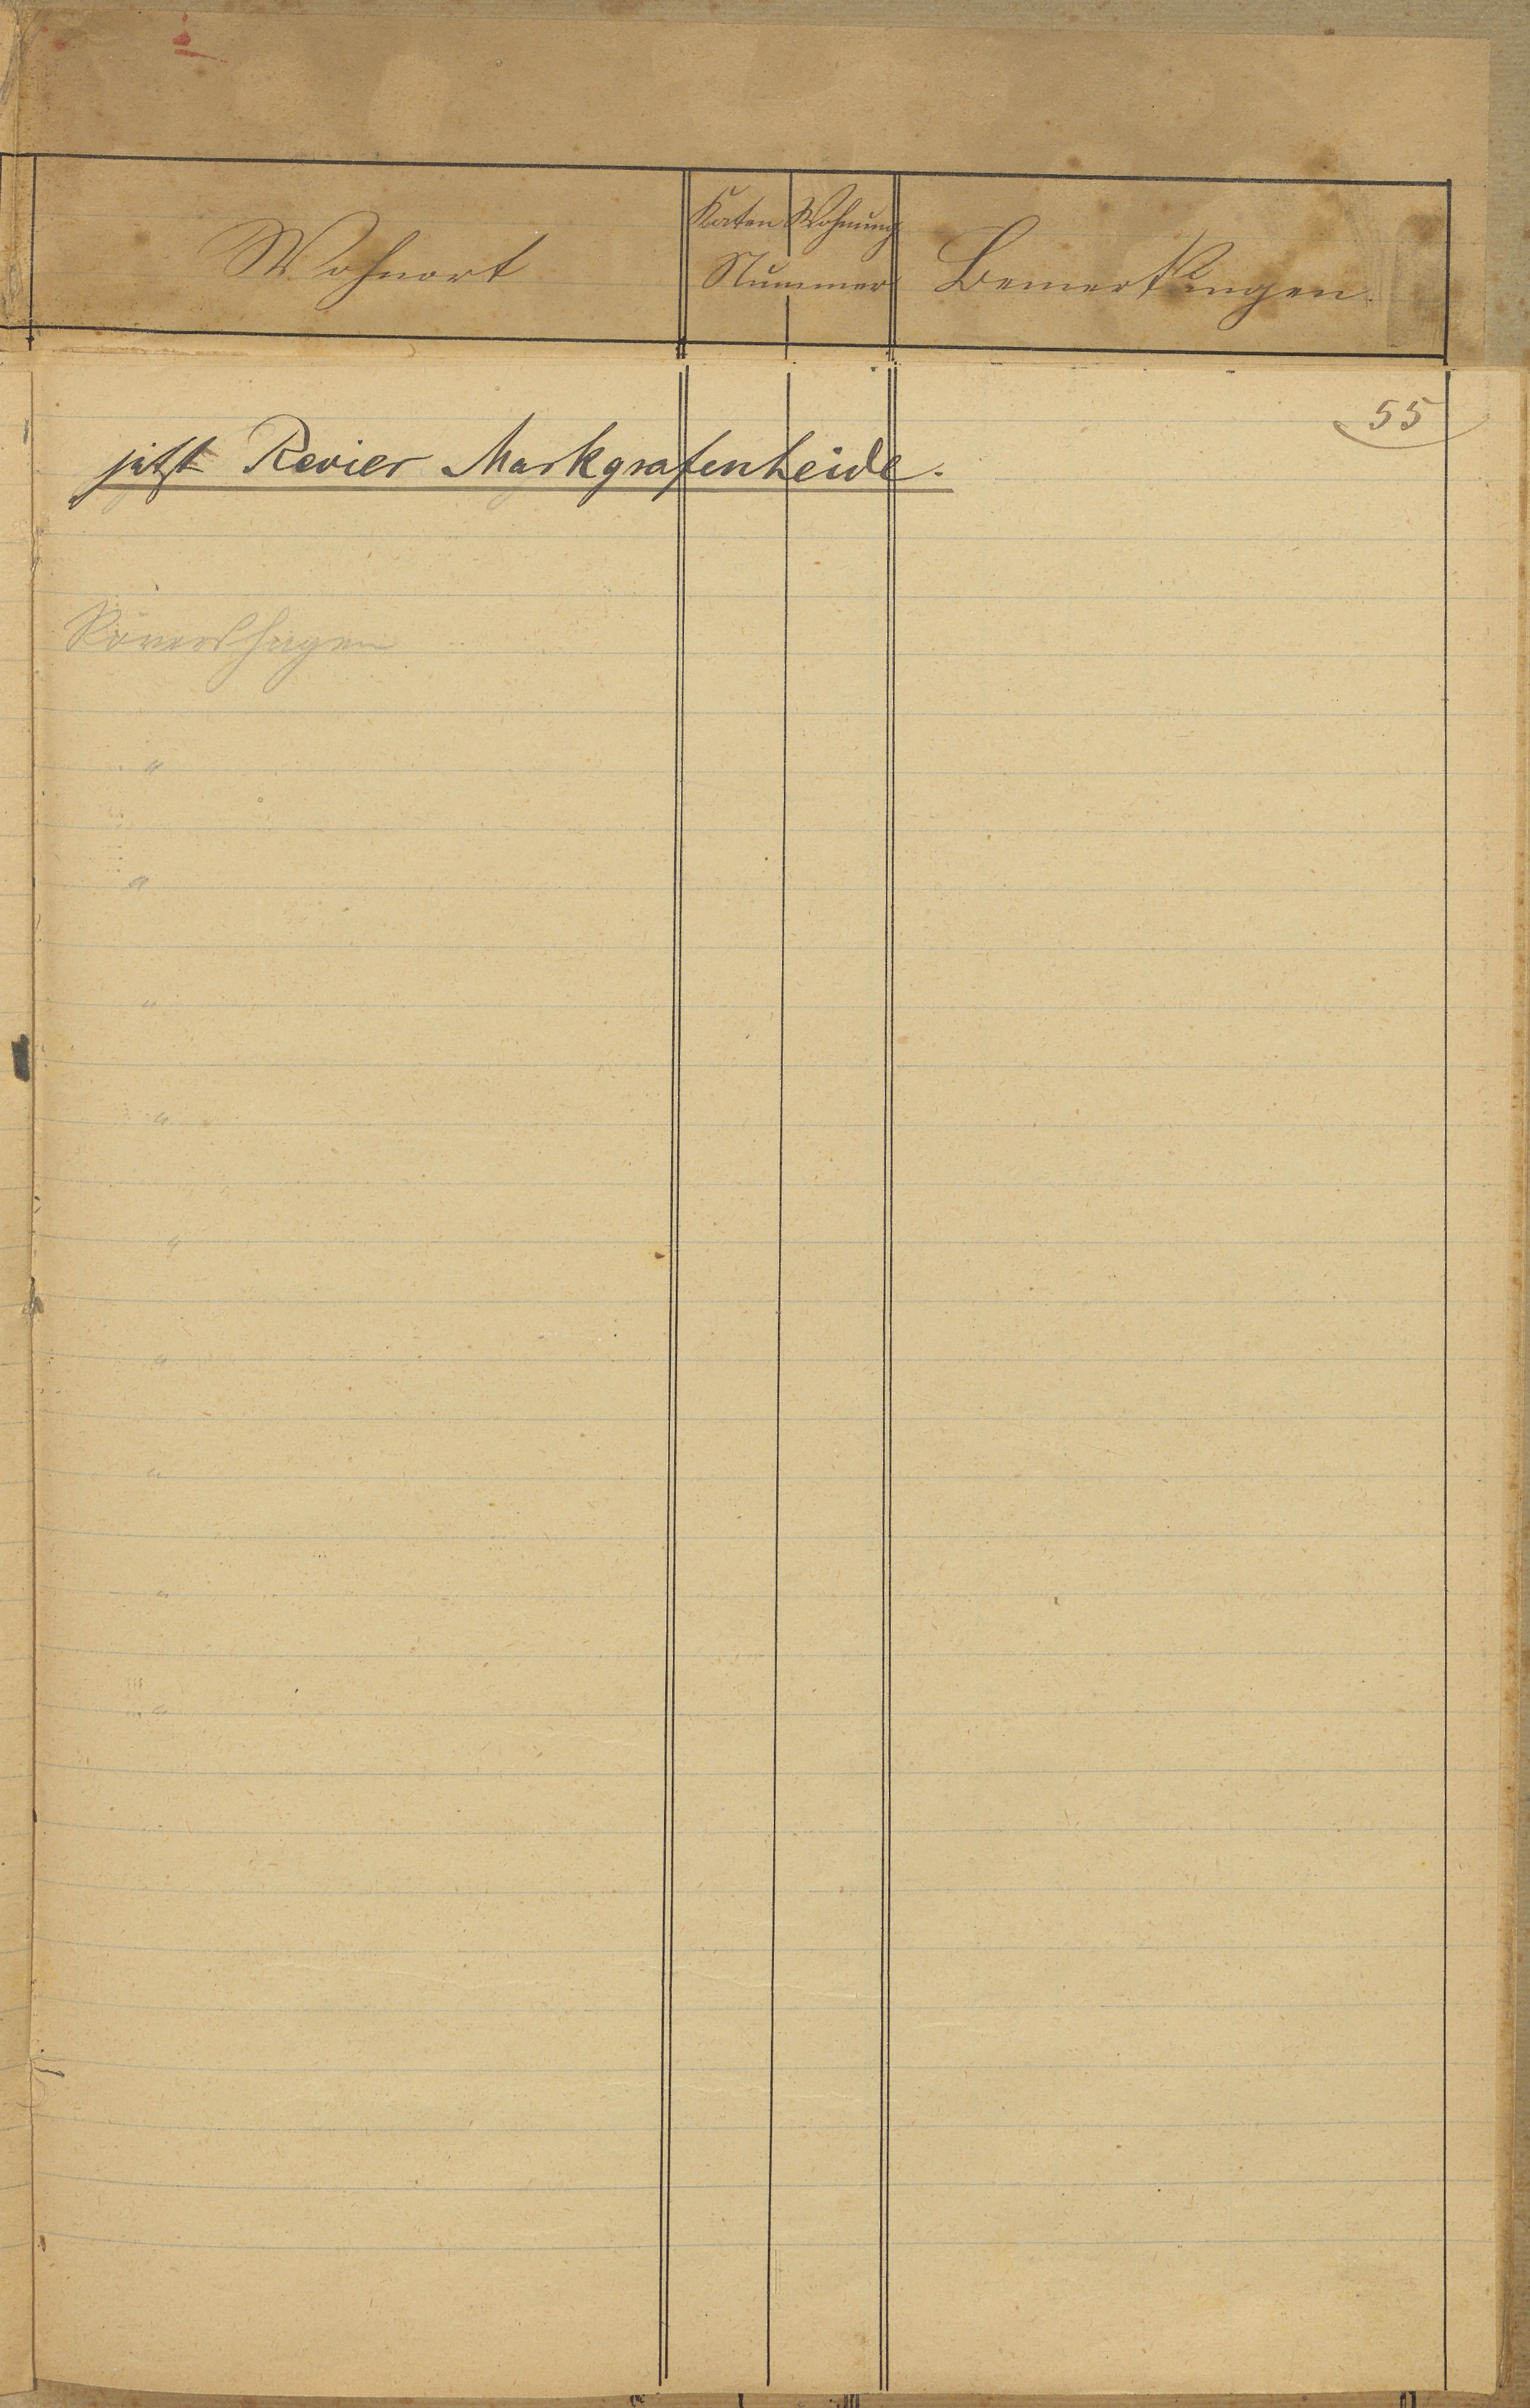 Wohnort
Katen Wohnung
Nummer
Bemerkungen.
55
jetzt Revier Markgrafenheide.
Rövershagen
"
"
"
"
"
"
"
"
"